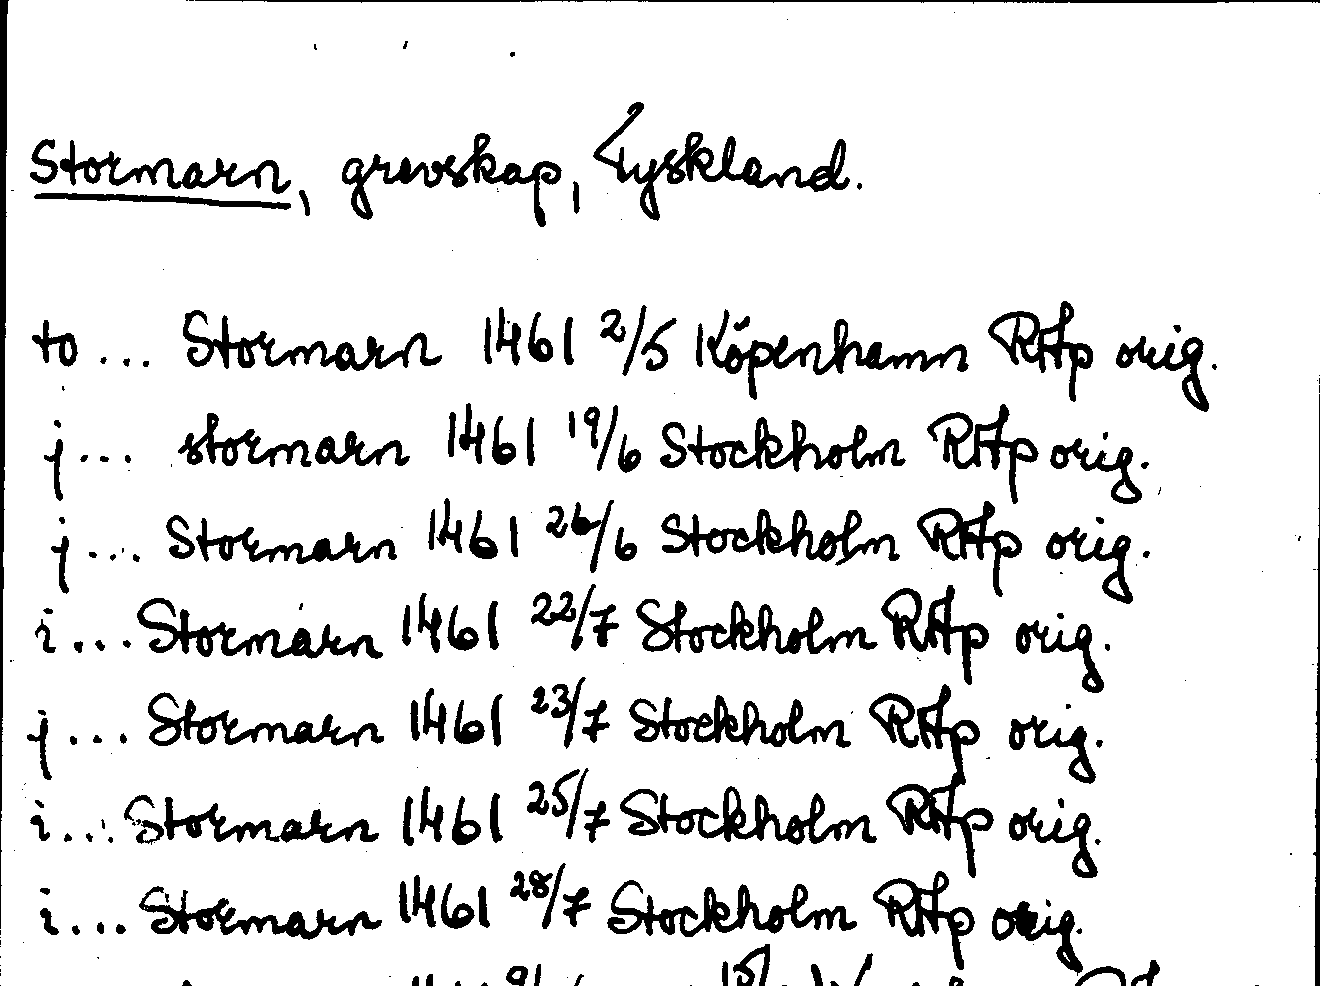 Stormarn, grevskap, Tyskland.
to ... Stormarn 1461 2/5 Köpenhamn RAp orig.
j ... stormarn 1461 19/6 Stockholm RAp orig.
j ... Stormarn 1461 26/6 Stockholm RAp orig.
i ... Stormarn 1461 22/7 Stockholm RAp orig.
j ... Stormarn 1461 23/7 Stockholm RAp orig.
i ... Stormarn 1461 25/7 Stockholm RAp orig.
i ... Stormarn 1461 28/7 Stockholm RAp orig.